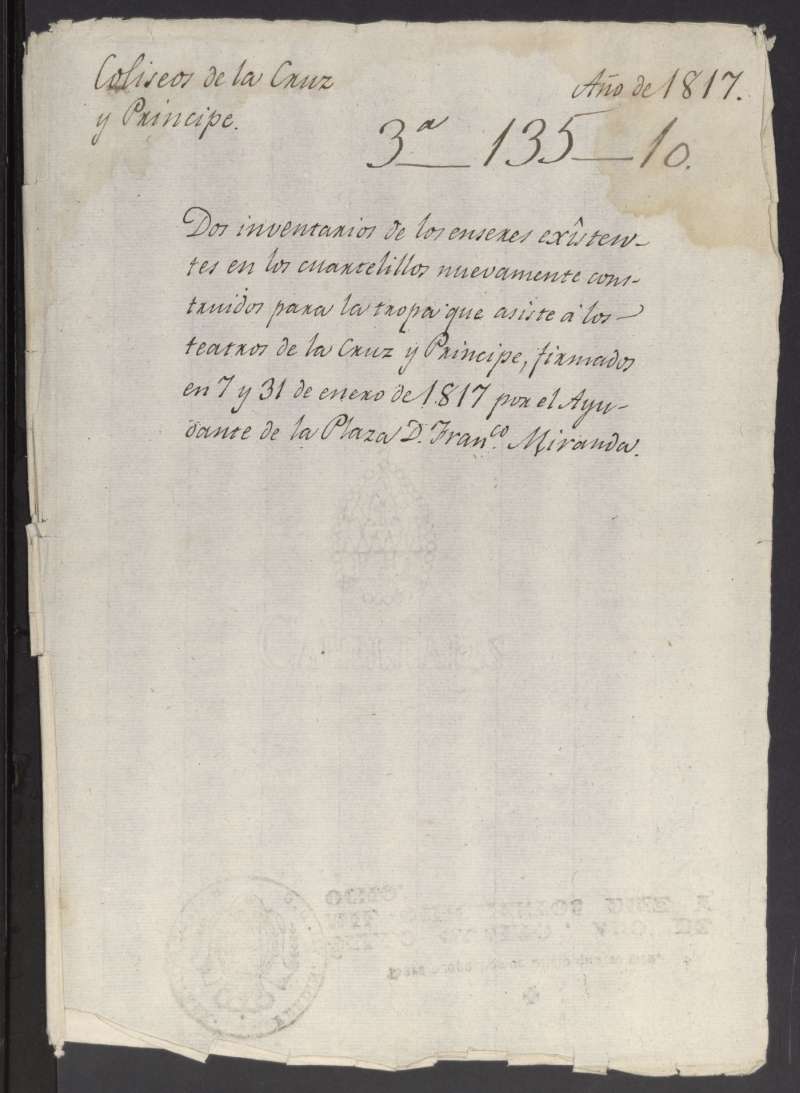 Coliseos de la Cruz
y Principe.
Año de 1817.
3ª — 135 — 10.
Dos inventarios de los enseres exîsten-
tes en los cuartelillos nuevamente cons-
truidos para la tropa que asiste á los
teatros de la Cruz y Principe, firmados
en 7 y 31 de enero de 1817 por el Ayu-
dante de la Plaza D. Fran.co Miranda.